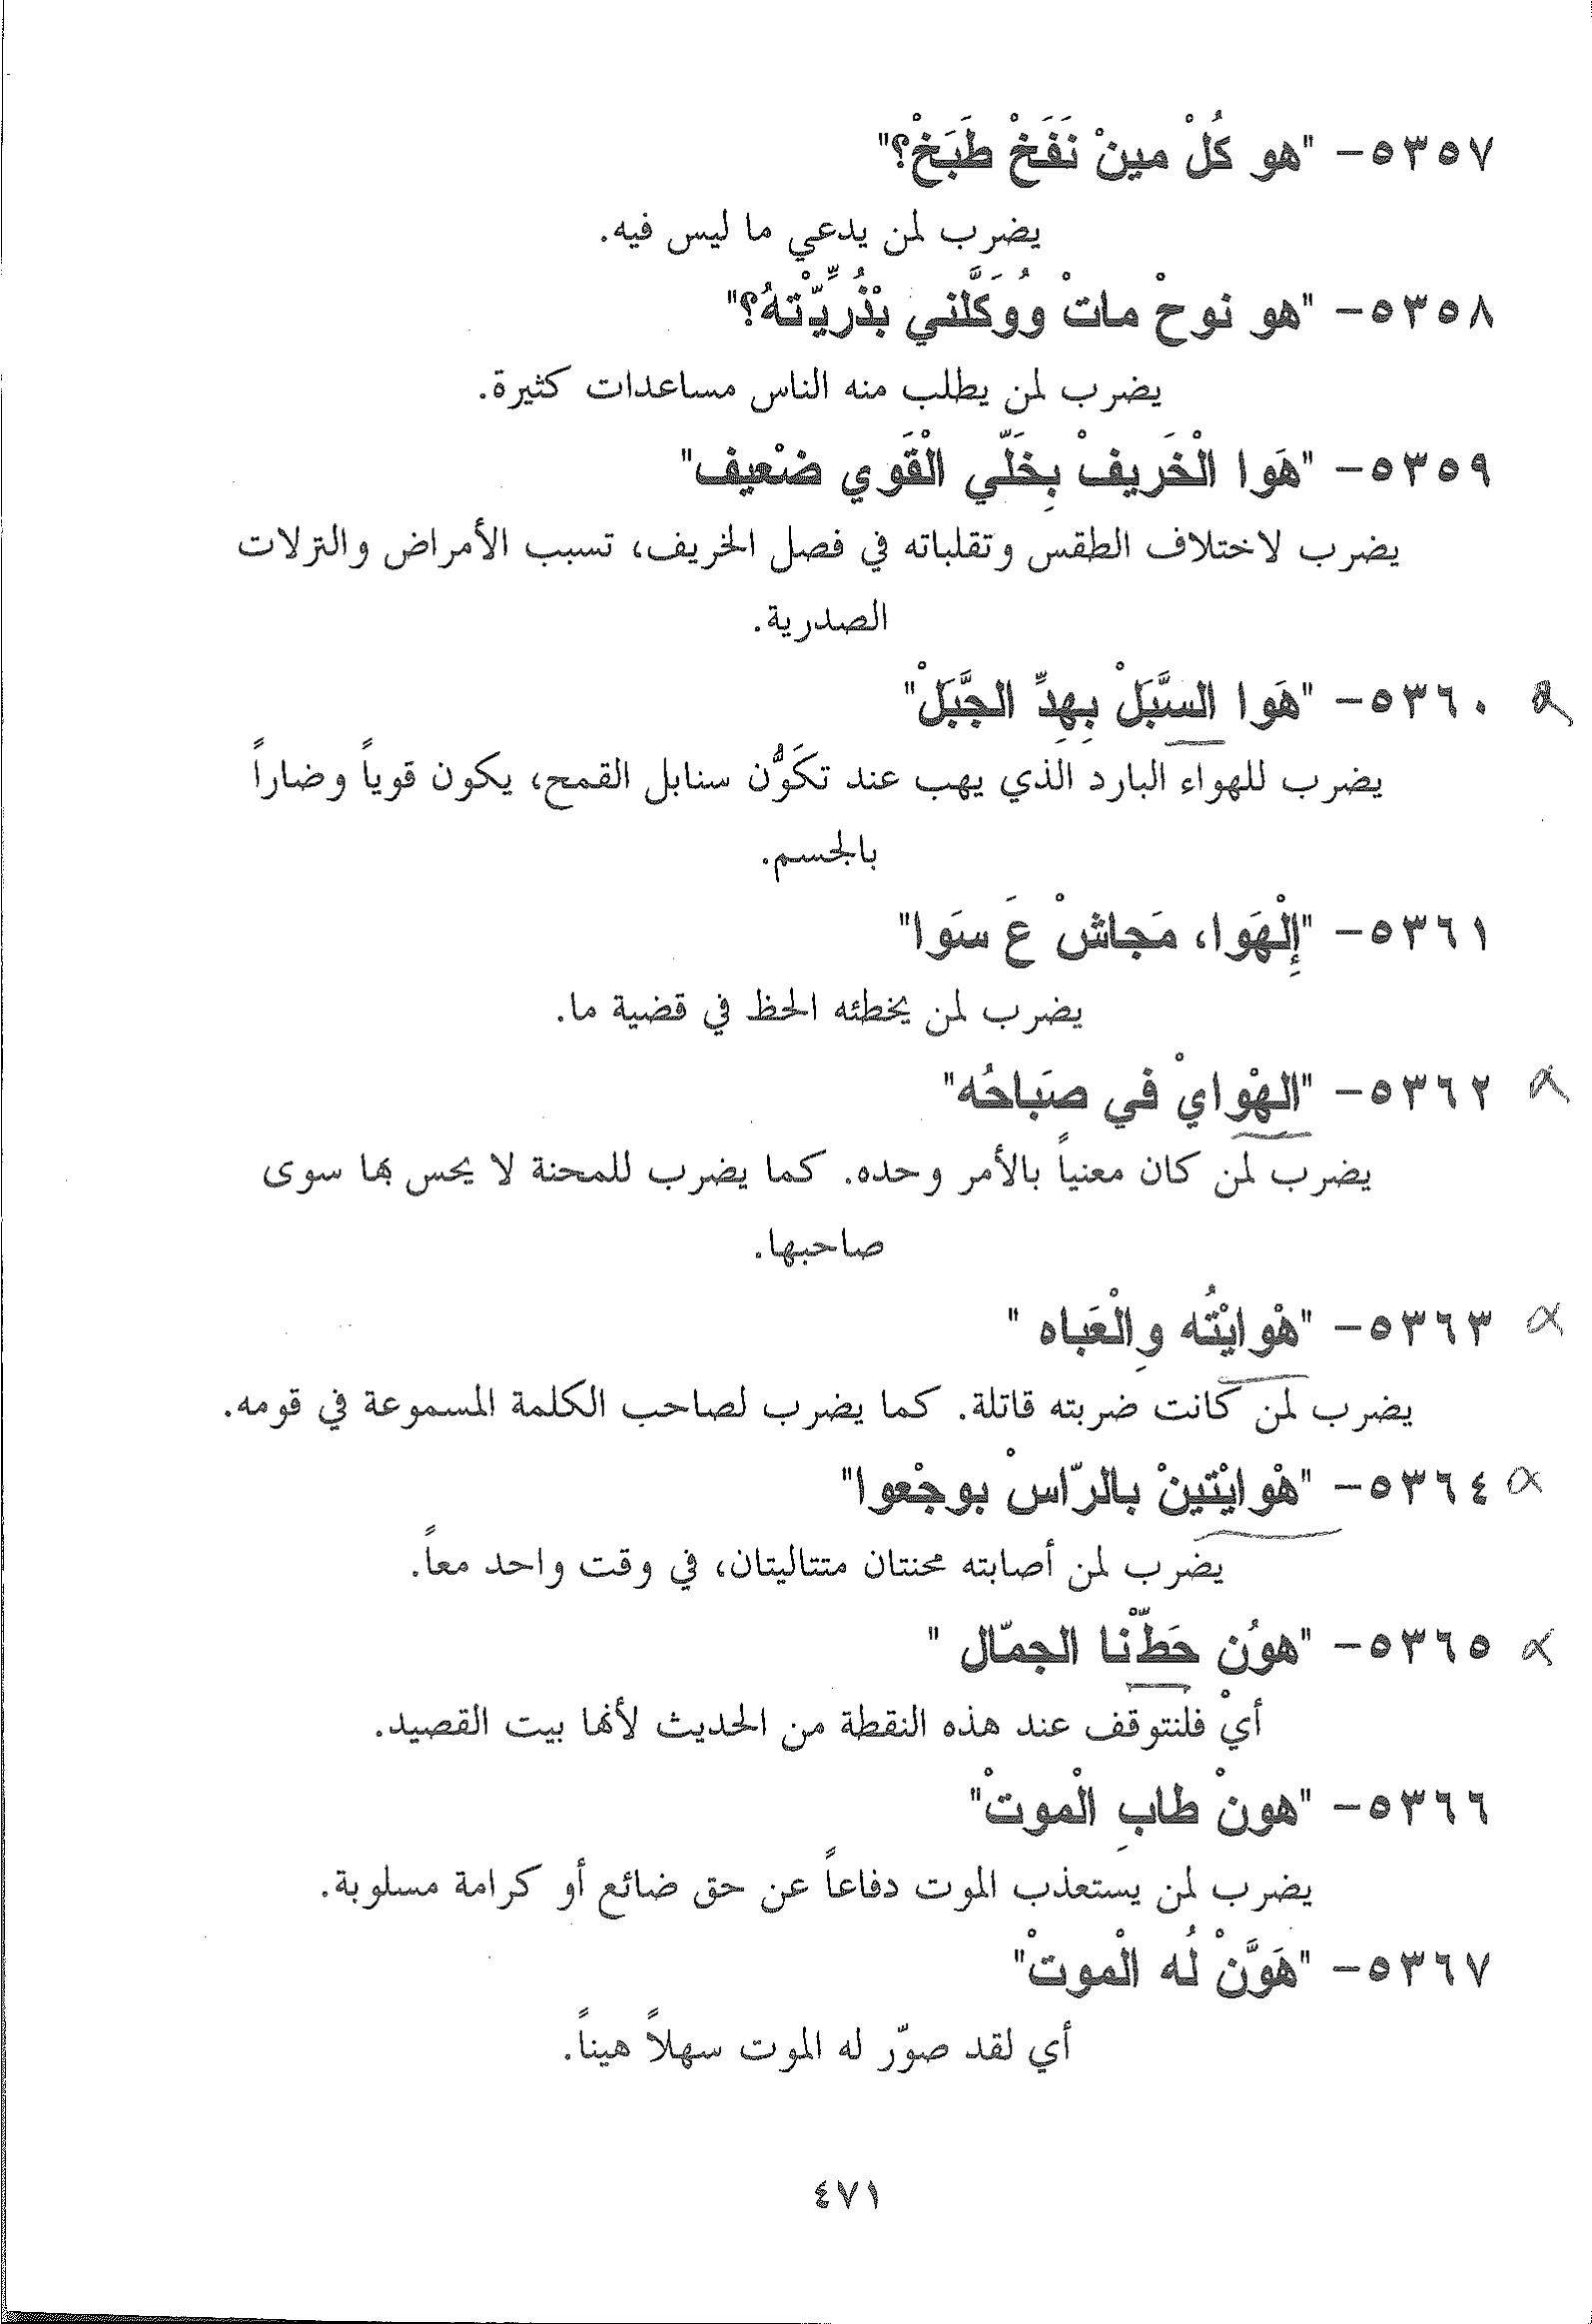 ٥٣٥٧- "هو كُلْ مينْ نَفَخْ طَبَخْ؟"
يضرب لمن يدعي ما ليس فيه.
٥٣٥٨- "هو نوحْ ماتْ ووُكَّلني بْذُرِّيّْتهُ؟"
يضرب لمن يطلب منه الناس مساعدات كثيرة.
٥٣٥٩- "هَوا الْخَريفْ بِخَلّي الْقَوي ضعْيف"
يضرب لاختلاف الطقس وتقلباته في فصل الخريف، تسبب الأمراض والنزلات
الصدرية.
٥٣٦٠- "هَوا السَّبَلْ بِهِدِّ الجَّبَلْ"
يضرب للهواء البارد الذي يهب عند تكَوُّن سنابل القمح، يكون قوياً وضاراً
بالجسم.
٥٣٦١- "إِلْهَوا، مَجاشْ عَ سوَا"
يضرب لمن يخطئه الحظ في قضية ما.
٥٣٦٢- "الهْوايْ في صبَاحُه"
يضرب لمن كان معنياً بالأمر وحده. كما يضرب للمحنة لا يحس بها سوى
صاحبها.
٥٣٦٣- "هْوايْتُه وِالْعَباه "
يضرب لمن كانت ضربته قاتلة. كما يضرب لصاحب الكلمة المسموعة في قومه.
٥٣٦٤- "هْوايْتينْ بالرّاسْ بوجْعوا"
يضرب لمن أصابته محنتان متتاليتان، في وقت واحد معاً.
٥٣٦٥- "هوُن حَطّْنا الجمّال "
أيْ فلنتوقف عند هذه النقطة من الحديث لأنها بيت القصيد.
٥٣٦٦- "هونْ طابِ الْموتْ"
يضرب لمن يستعذب الموت دفاعاً عن حق ضائع أو كرامة مسلوبة.
٥٣٦٧- "هَوَّنْ لُه الْموتْ"
أي لقد صوّر له الموت سهلاً هيناً.
٤٧١